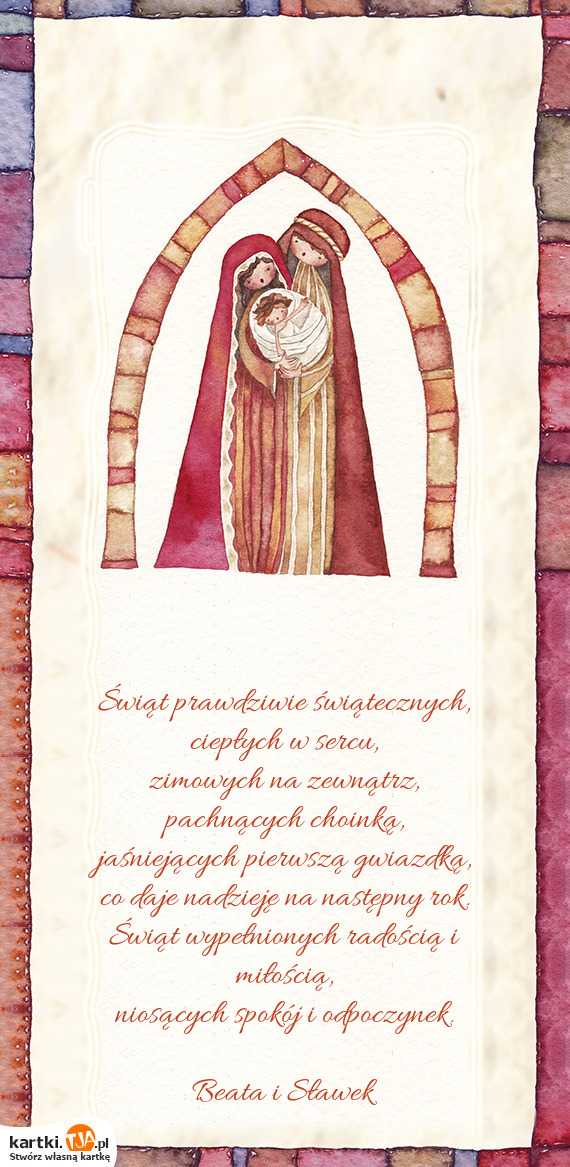 Świąt prawdziwie świątecznych,
ciepłych w sercu,
zimowych na zewnątrz,
pachnących choinką,
jaśniejących pierwszą gwiazdką,
co daje nadzieję na następny rok.
Świąt wypełnionych radością i
miłością,
niosących spokój i odpoczynek.
Beata i Sławek
kartki.TJA.pl
Stwórz własną kartkę